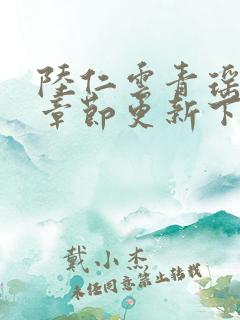 陸仁雲青瑶
章節更新下
戴小杰
未经同意禁止转载